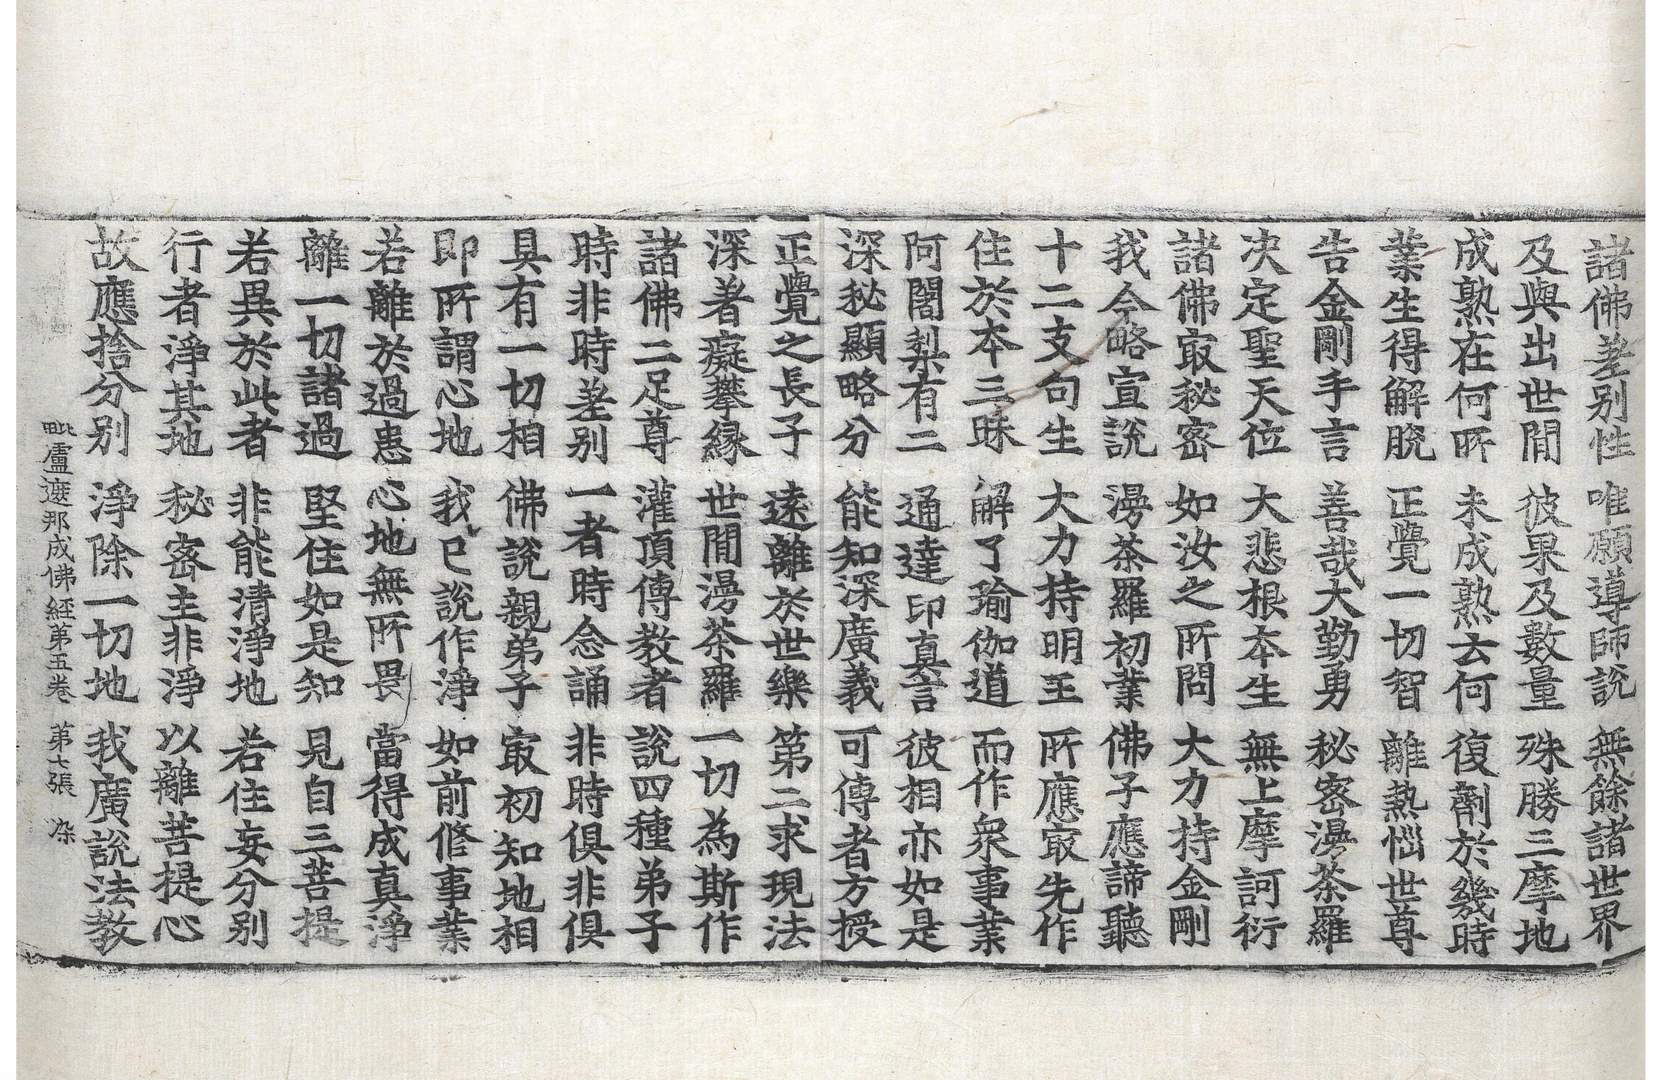 諸佛差別性 唯願導師說 無餘諸世界
及與出世間 彼果及數量 殊勝三摩地
成熟在何所 未成熟云何 復劑於幾時
業生得解脫 正覺一切智 離熱惱世尊
告金剛手言 善哉大勤勇 秘密漫茶羅
決定聖天位 大悲根本生 無上摩訶衍
諸佛㝡秘密 如汝之所問 大力持金剛
我今略宣說 漫茶羅初業 佛子應諦聽
十二支句生 大力持明王 所應㝡先作
住於本三昧 解了瑜伽道 而作衆事業
阿闍梨有二 通達印真言 彼相亦如是
深秘顯略分 能知深廣義 可傳者方授
正覺之長子 遠離於世樂 第二求現法
深著癡攀緣 世間漫茶羅 一切為斯作
諸佛二足尊 灌頂傳教者 說四種弟子
時非時差別 一者時念誦 非時俱非俱
具有一切相 佛說親弟子 㝡初知地相
即所謂心地 我已說作淨 如前修事業
若離於過患 心地無所畏 當得成真淨
離一切諸過 堅住如是知 見自三菩提
若異於此者 非能清淨地 若住妄分別
行者淨其地 秘密主非淨 以離菩提心
故應捨分別 淨除一切地 我廣說法教
毗盧遮那成佛經第五卷 第七張 染